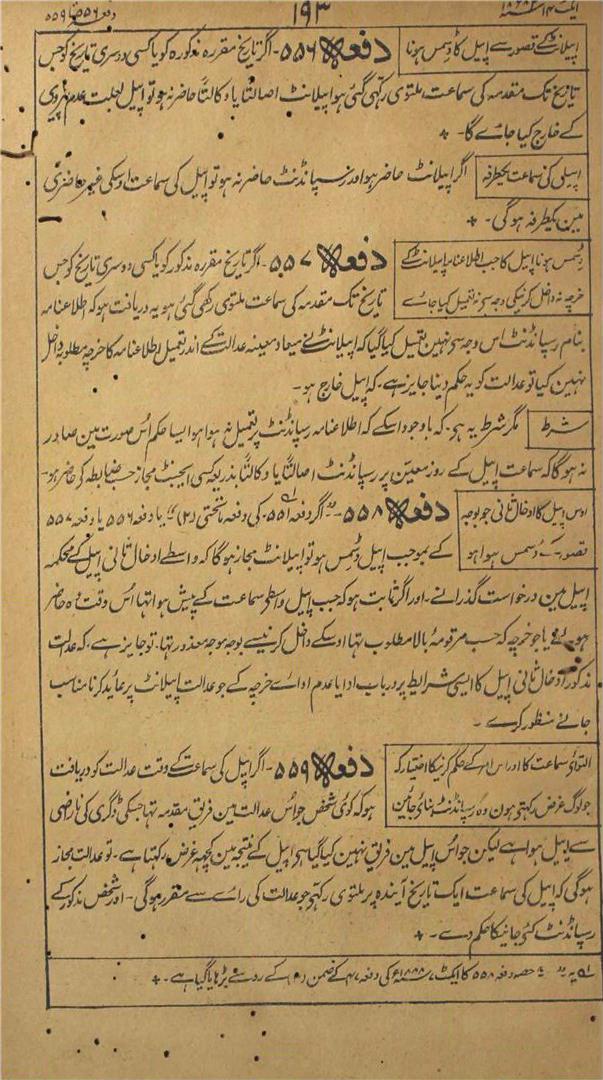 ایکٹ ۱۴ ۱۸۸۲ء ۱۹۳ دفعہ ۵۵۶ تا ۵۵۹
اپیلانٹ کے قصور سے اپیل کا ڈسمس ہونا دفعہ ۵۵۶ - اگر تاریخ مقررہ مذکورہ کو یا کسی دوسری تاریخ کو جس
تاریخ تک مقدمہ کی سماعت ملتوی رکھی گئی ہو اپیلانٹ اصالتاً یا وکالتاً حاضر نہ ہو تو اپیل بعلت عدم پیروی
کے خارج کیا جاے گا -
اپیل کی سماعت یکطرفہ اگر اپیلانٹ حاضر ہو اور رسپانڈنٹ حاضر نہ ہو تو اپیل کی سماعت اوسکی غیر حاضری
مین یکطرفہ ہوگی -
ڈسمس ہونا اپیل کا جب اطلاعنامہ اپیلانٹ کے دفعہ ۵۵۷ - اگر تاریخ مقررہ مذکور کو یا کسی دوسری تاریخ کو جس
خرچہ نہ داخل کرنیکی وجہ سے نہ تعمیل کیا جاے تاریخ تک مقدمہ کی سماعت ملتوی رکھی گئی ہو یہ دریافت ہو کہ اطلاعنامہ
بنام رسپانڈنٹ اس وجہ سی نہین تعمیل کیا گیا کہ اپیلانٹ نے میعاد معینہ عدالت کے اندر تعمیل اطلاعنامہ کا خرچہ مطلوبہ داخل
نہین کیا تو عدالت کو یہ حکم دینا جایز ہے - کہ اپیل خارج ہو -
شرط مگر شرط یہ ہی - کہ باوجود اسکے کہ اطلاعنامہ رسپانڈنٹ پر تعمیل نہ ہوا ہو ایسا حکم اُس صورت مین صادر
نہ ہوگا کہ سماعت اپیل کے روز معین پر رسپانڈنٹ اصالتاً یا وکالتاً یا بذریعہ کسی ایجنٹ مجاز حسب ضابطہ کی حاضر ہو -
اوس اپیل کا ادخال ثانی جو بوجہ دفعہ ۵۵۸ - اگر دفعہ ۵۵۱ کی دفعہ ماتحتی (۲) یا دفعہ ۵۵۶ یا دفعہ ۵۵۷
قصور کے ڈسمس ہوا ہو کے بموجب اپیل ڈسمس ہو تو اپیلانٹ مجاز ہوگا کہ واسطے ادخال ثانی اپیل کے محکمہ
اپیل مین درخواست گذرانے - اور اگر ثابت ہو کہ جب اپیل واسطے سماعت کے پیش ہوا تھا اُس وقت وہ حاضر
ہونے یا جو خرچہ کہ حسب مرقومہ بالا مطلوب تھا اوسکے داخل کرنیسے بوجہ موجہ معذور تھا - تو جایز ہے ، کہ عدالت
مذکور ادخال ثانی اپیل کا ایسی شرایط پر درباب ادا یا عدم اداے خرچہ کے جو عدالت اپیلانٹ پر عاید کرنا مناسب
جانے منظور کرے -
التواے سماعت کا اور اس امر کے حکم کرنیکا اختیار کہ دفعہ ۵۵۹ - اگر اپیل کی سماعت کے وقت عدالت کو دریافت
جو لوگ غرض رکھتی ہون وہ رسپانڈنٹ بنائی جائین ہو کہ کوئی شخص جو اُس عدالت مین فریق مقدمہ تھا جسکی ڈگری کی ناراضی
سے اپیل ہوا ہے لیکن جو اُس اپیل مین فریق نہین کیا گیا ہی اپیل کے نتیجہ مین کچھ غرض رکھتا ہے - تو عدالت مجاز
ہوگی کہ اپیل کی سماعت ایک تاریخ آیندہ پر ملتوی رکھی جو عدالت کی راے سے مقرر ہوگی - اور شخص مذکور کے
رسپانڈنٹ کئے جانیکا حکم دے -
یہ حصہ دفعہ ۵۵۸ کا ایکٹ ۷ ۱۸۸۸ء کی دفعہ ۴۷ کے ضمن کے روسے بڑھایا گیا ہے -